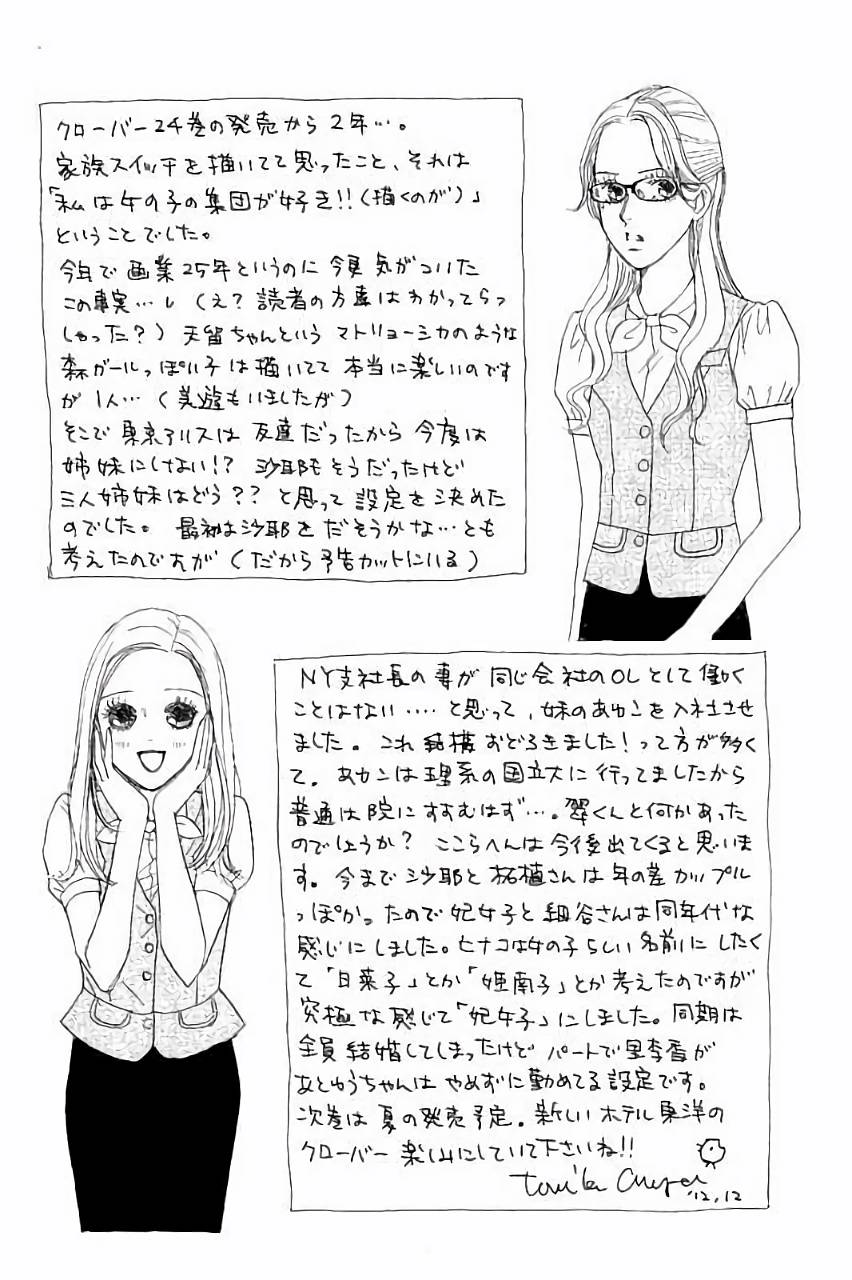 クローバー24巻の発売から2年…。
家族スイッチを描いてて思ったこと、それは
「私は女の子の集団が好き!!(描くのが)」
ということでした。
今年で画業25年というのに今更気がついた
この事実…し(え?読者の方達はわかってらっ
しゃった?)天留ちゃんというマトリョーシカのような
森ガールっぽい子は描いてて本当に楽しいのです
が1人…(美遊もいましたが)
そこで東京アリスは友達だったから今度は
姉妹にしない!?沙耶もそうだったけど
三人姉妹はどう??と思って設定を決めた
のでした。最初は沙耶をだそうかな…とも
考えたのですが(だから予告カットにいる)
NY支社長の妻が同じ会社のOLとして働く
ことはない‥‥と思って、妹のあゆこを入社させ
ました。これ結構おどろきました!って方が多く
て。あゆこは理系の国立大に行ってましたから
普通は院にすすむはず…。翠くんと何かあった
のでしょうか?ここらへんは今後出てくると思いま
す。今まで沙耶と柘植さんは年の差カップル
っぽかったので妃女子と細谷さんは同年代な
感じにしました。ヒナコは女の子らしい名前にしたく
て「日菜子」とか「姫南子」とか考えたのですが
究極な感じで「妃女子」にしました。同期は
全員結婚してしまったけどパートで里李香が
あとゆうちゃんはやめずに勤めてる設定です。
次巻は夏の発売予定。新しいホテル東洋の
クローバー楽しみにしていて下さいね!!
'12.12